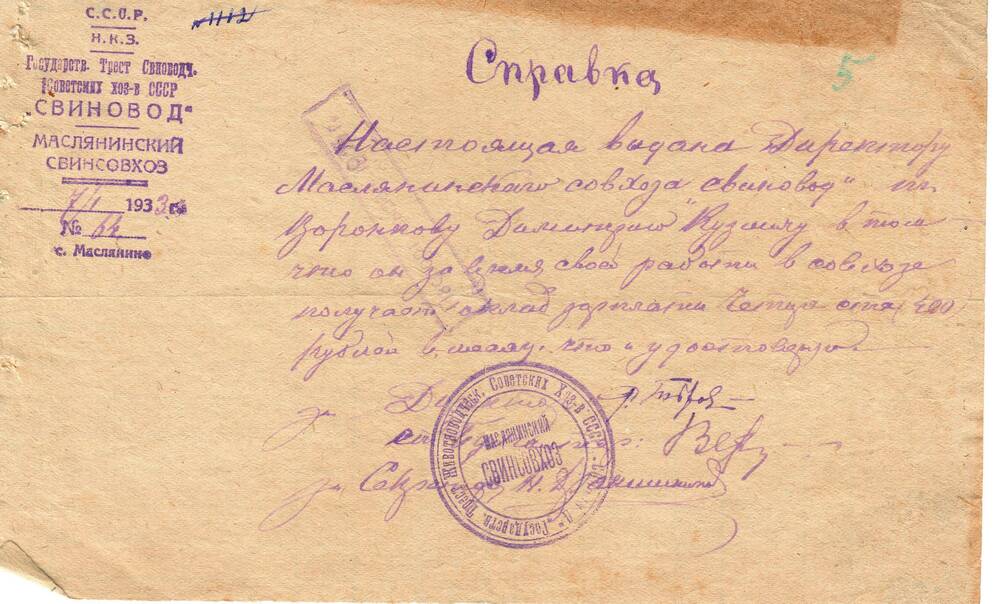 С.С.С.Р.
Н.К.З.
Государств. Трест Свиноводч.
Советских хоз-в СССР
„СВИНОВОД"
МАСЛЯНИНСКИЙ
СВИНСОВХОЗ
7/I 1933 г.
№ 64
с. Маслянино
№ 1112
5
Справка
Настоящая выдана Директору
Маслянинского совхоза свиновод" т.
Воронкову Дмитрию Кузмичу в том
что он за время своей работы в совхозе
получает оклад зарплаты Четыреста (400)
рублей в месяц. что и удостоверяю.
Государств. Трест Животноводческ. Советских Хоз-в СССР
МАСЛЯНИНСКИЙ
СВИНСОВХОЗ